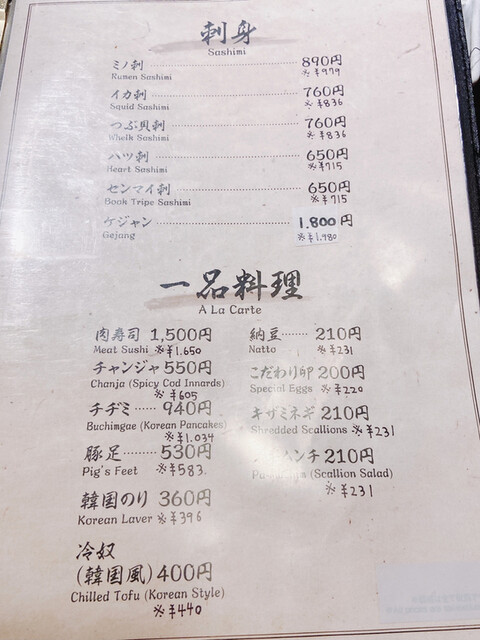 刺身
Sashimi
ミノ刺 890円
Rumen Sashimi ※¥979
イカ刺 760円
Squid Sashimi ※¥836
つぶ貝刺 760円
Whelk Sashimi ※¥836
ハツ刺 650円
Heart Sashimi ※¥715
センマイ刺 650円
Book Tripe Sashimi ※¥715
ケジャン 1.800円
Gejang ※¥1.980
一品料理
A La Carte
肉寿司 1,500円
Meat Sushi ※¥1.650
チャンジャ 550円
Chanja (Spicy Cod Innards)
※¥605
チヂミ 940円
Buchimgae (Korean Pancakes)
※¥1.034
豚足 530円
Pig's Feet ※¥583.
韓国のり 360円
Korean Laver ※¥396
冷奴
(韓国風) 400円
Chilled Tofu (Korean Style)
※¥440
納豆 210円
Natto ※¥231
こだわり卵 200円
Special Eggs ※¥220
キザミネギ 210円
Shredded Scallions ※¥231
ンチ 210円
(Scallion Salad)
※¥231